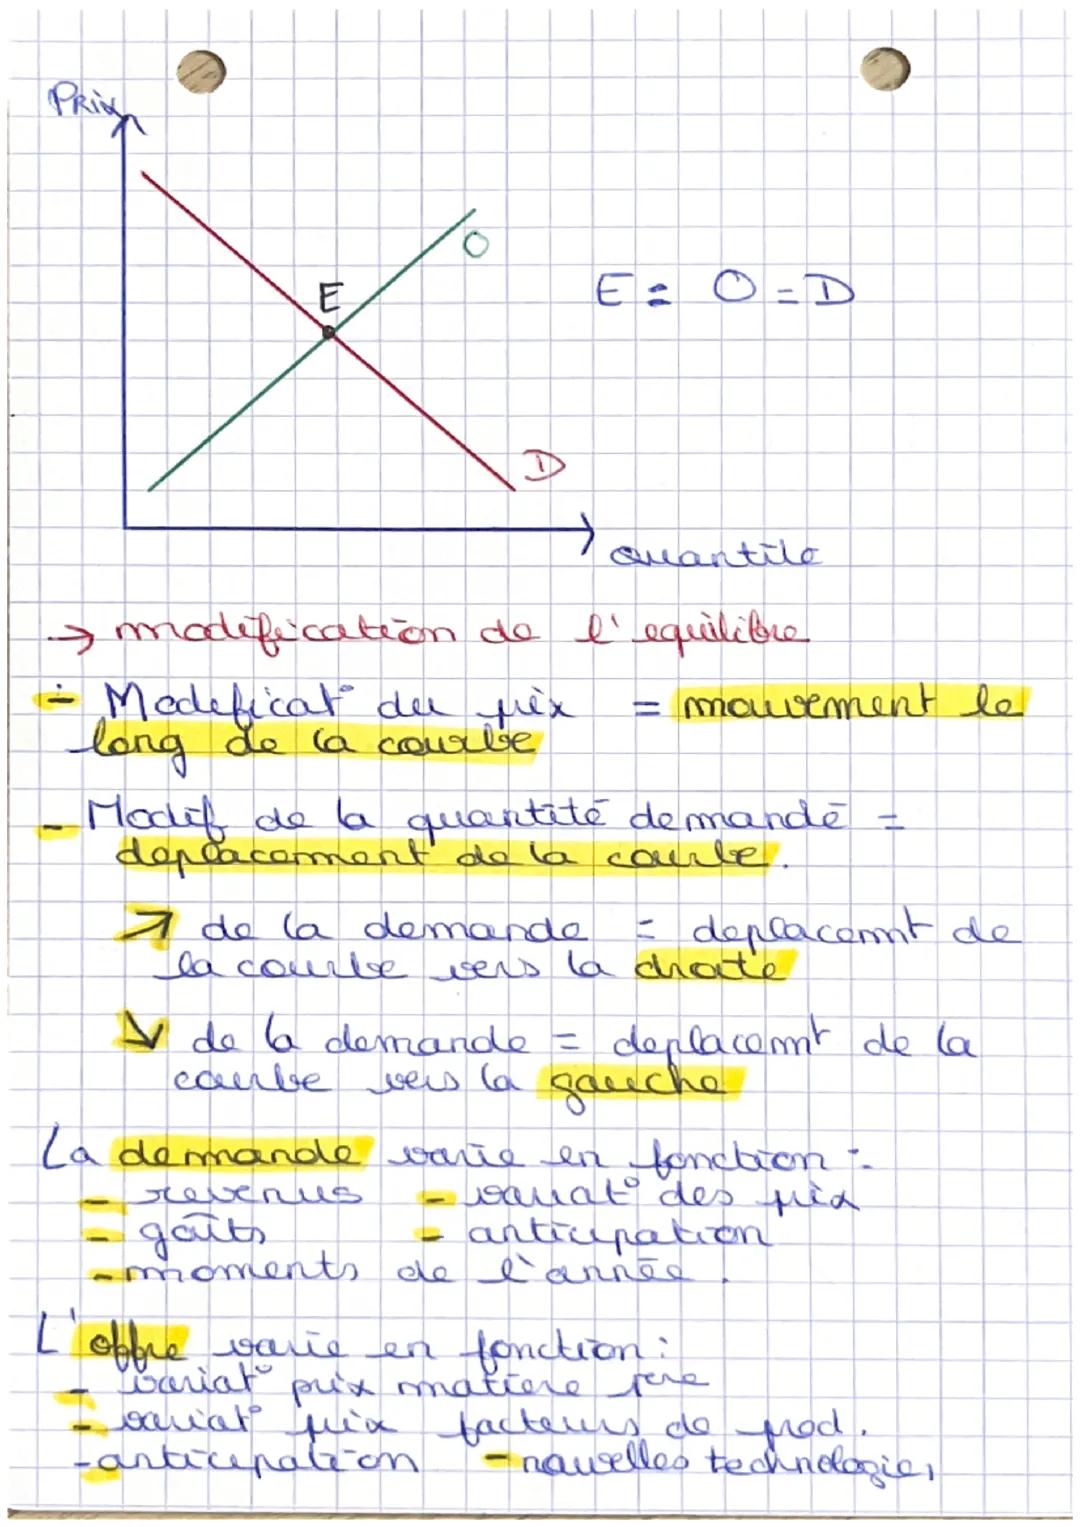 Prix
O
E
E = O = D
D
quantité
→ modification de l'equilibre
- Modificat° du prix = mouvement le
long de la courbe
- Modif de la quantité demandé =
deplacement de la courbe.
↗ de la demande = deplacemnt de
la courbe vers la droite
↘ de la demande = deplacemnt de la
courbe vers la gauche
La demande varie en fonction :
- revenus - variat° des prix
- goûts - anticipation
- moments de l'année.
L'offre varie en fonction :
- variat° prix matière 1ere
- variat° prix facteurs de prod.
- anticipation - nouvelles technologies